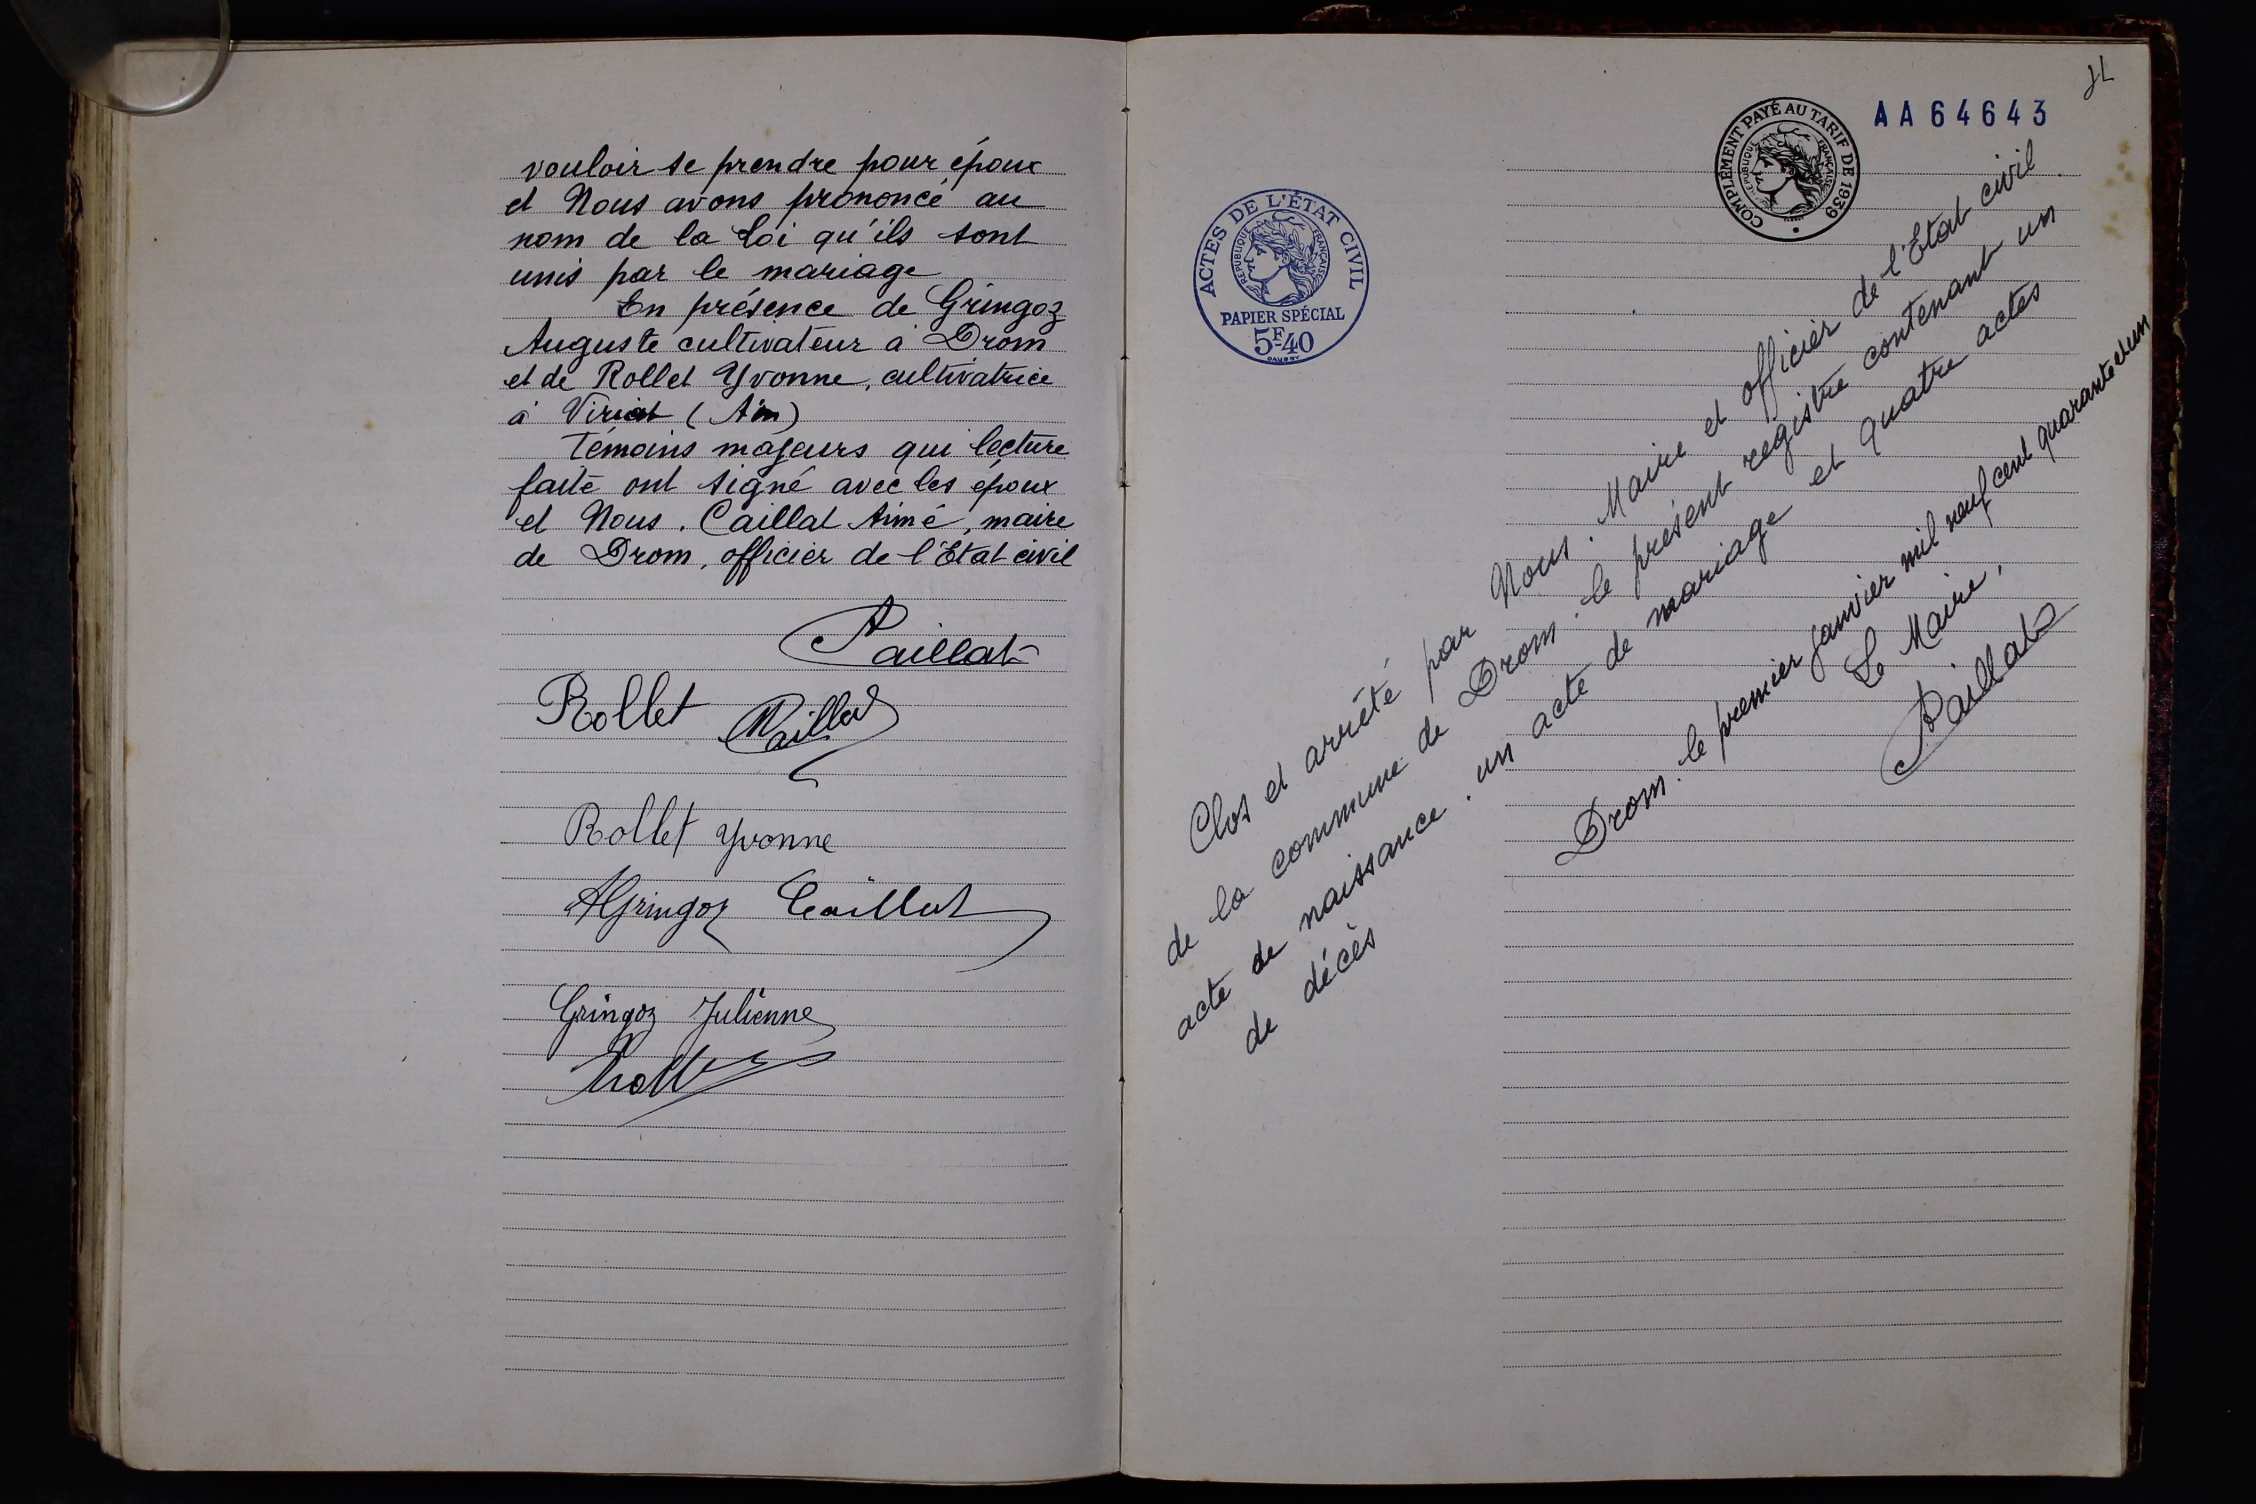 vouloir se prendre pour époux
et Nous avons prononcé au
nom de la loi qu'ils sont
unis par le mariage
En présence de Gringoz
Auguste cultivateur à Drom
et de Rollet Yvonne, cultivatrice
à Viriat (Ain)
Témoins majeurs qui lecture
faite ont signé avec les époux
et Nous. Caillat Aimé, maire
de Drom, officier de l'Etat civil
A Caillat
Rollet MCaillat
Rollet Yvonne
AGringoz Caillat
Gringoz Julienne
Rollet
AA64643
COMPLÉMENT PAYÉ AU TARIF DE 1939
RÉPUBLIQUE FRANÇAISE
ACTES DE L'ÉTAT CIVIL
RÉPUBLIQUE FRANÇAISE
PAPIER SPÉCIAL
5F-40
Clos et arrêté par Nous. Maire et officier de l'Etat civil
de la commune de Drom. le présent registre contenant un
acte de naissance. un acte de mariage et quatre actes
de décès
Drom. le premier janvier mil neuf cent quarante et un
Le Maire,
A Caillat